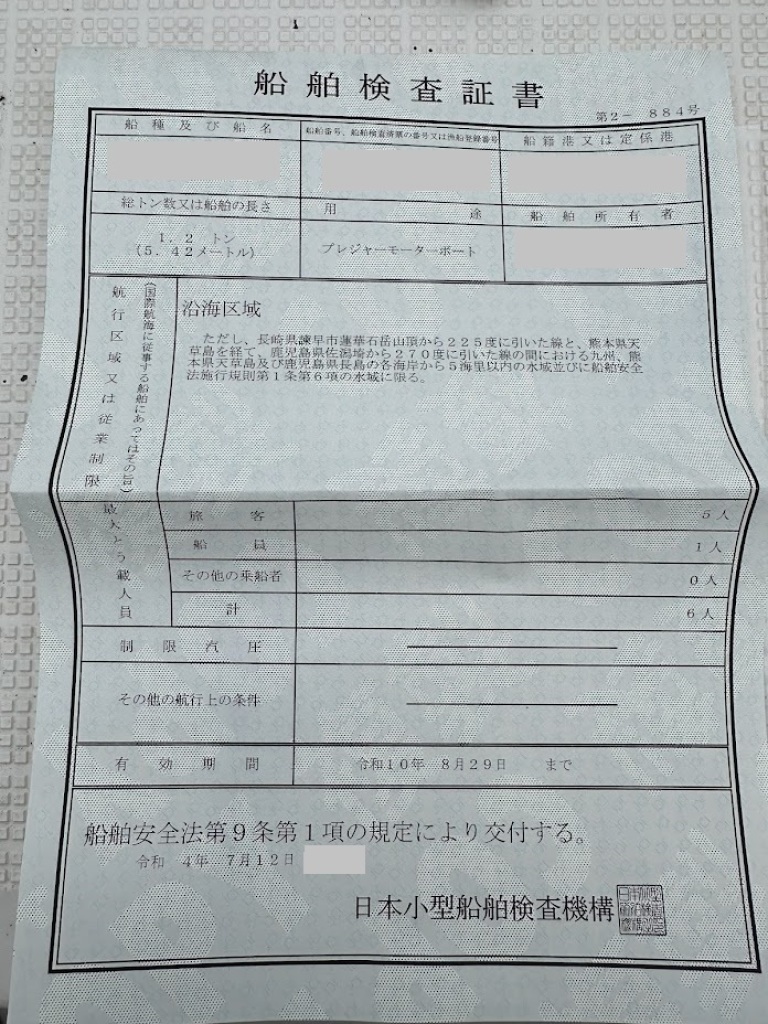 船舶検査証書
第2－ 884号
船種及び船名
船舶番号、船舶検査済票の番号又は漁船登録番号
船籍港又は定係港
総トン数又は船舶の長さ
用途
船舶所有者
1．2 トン
（5．42メートル）
プレジャーモーターボート
航行区域又は従業制限
（国際航海に従事する船舶にあってはその旨）
沿海区域
ただし、長崎県諫早市蓮華石岳山頂から225度に引いた線と、熊本県天
草島を経て、鹿児島県佐潟埼から270度に引いた線の間における九州、熊
本県天草島及び鹿児島県長島の各海岸から5海里以内の水域並びに船舶安全
法施行規則第1条第6項の水域に限る。
最大とう載人員
旅客 5人
船員 1人
その他の乗船者 0人
計 6人
制限汽圧
その他の航行上の条件
有効期間 令和10年 8月29日 まで
船舶安全法第9条第1項の規定により交付する。
令和 4年 7月12日
日本小型船舶検査機構